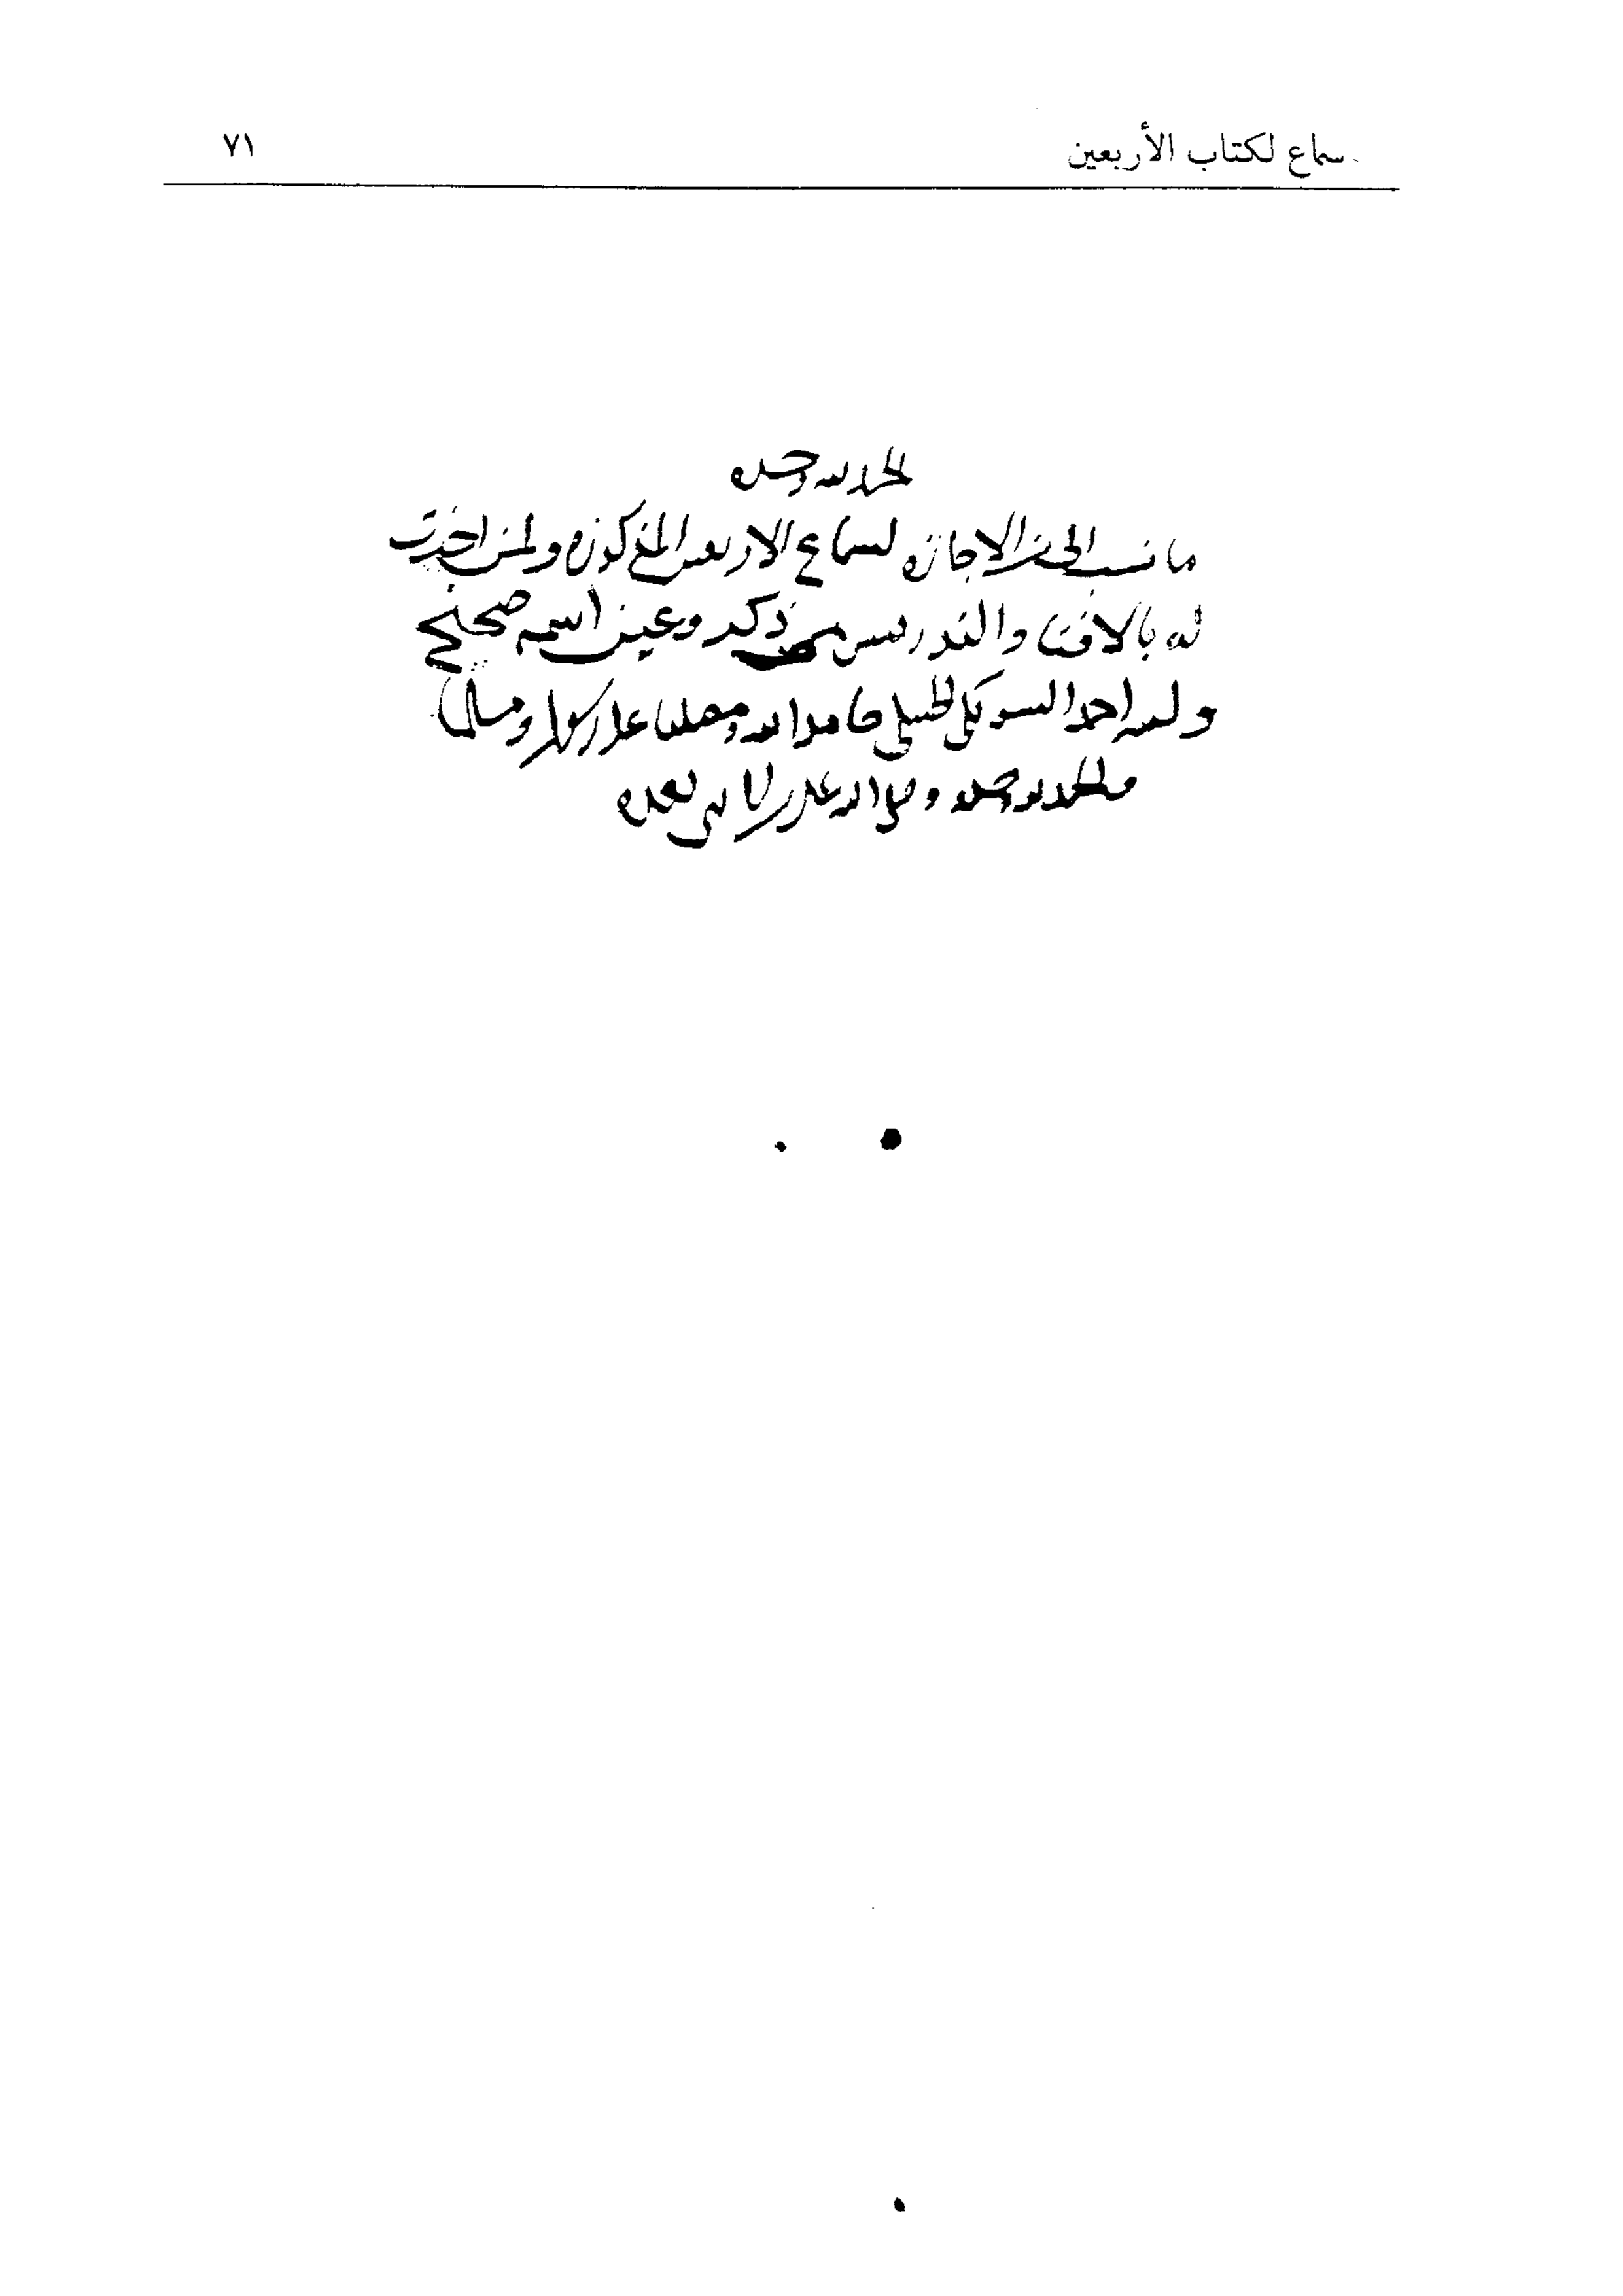 سماع لكتاب الأربعين ٧١
الحمد لله وحده
ما نسب الي من الاجازة لسماع الاربعين المذكورة ولمن اجزت
له بالافتا والتدريس ممن ذكر وعين اسمه صحيح
احمد الشويكي الحنبلي حامدا لله ومصليا على رسوله ومسلما
والحمد لله وحده وصلى الله على من لا نبي بعده